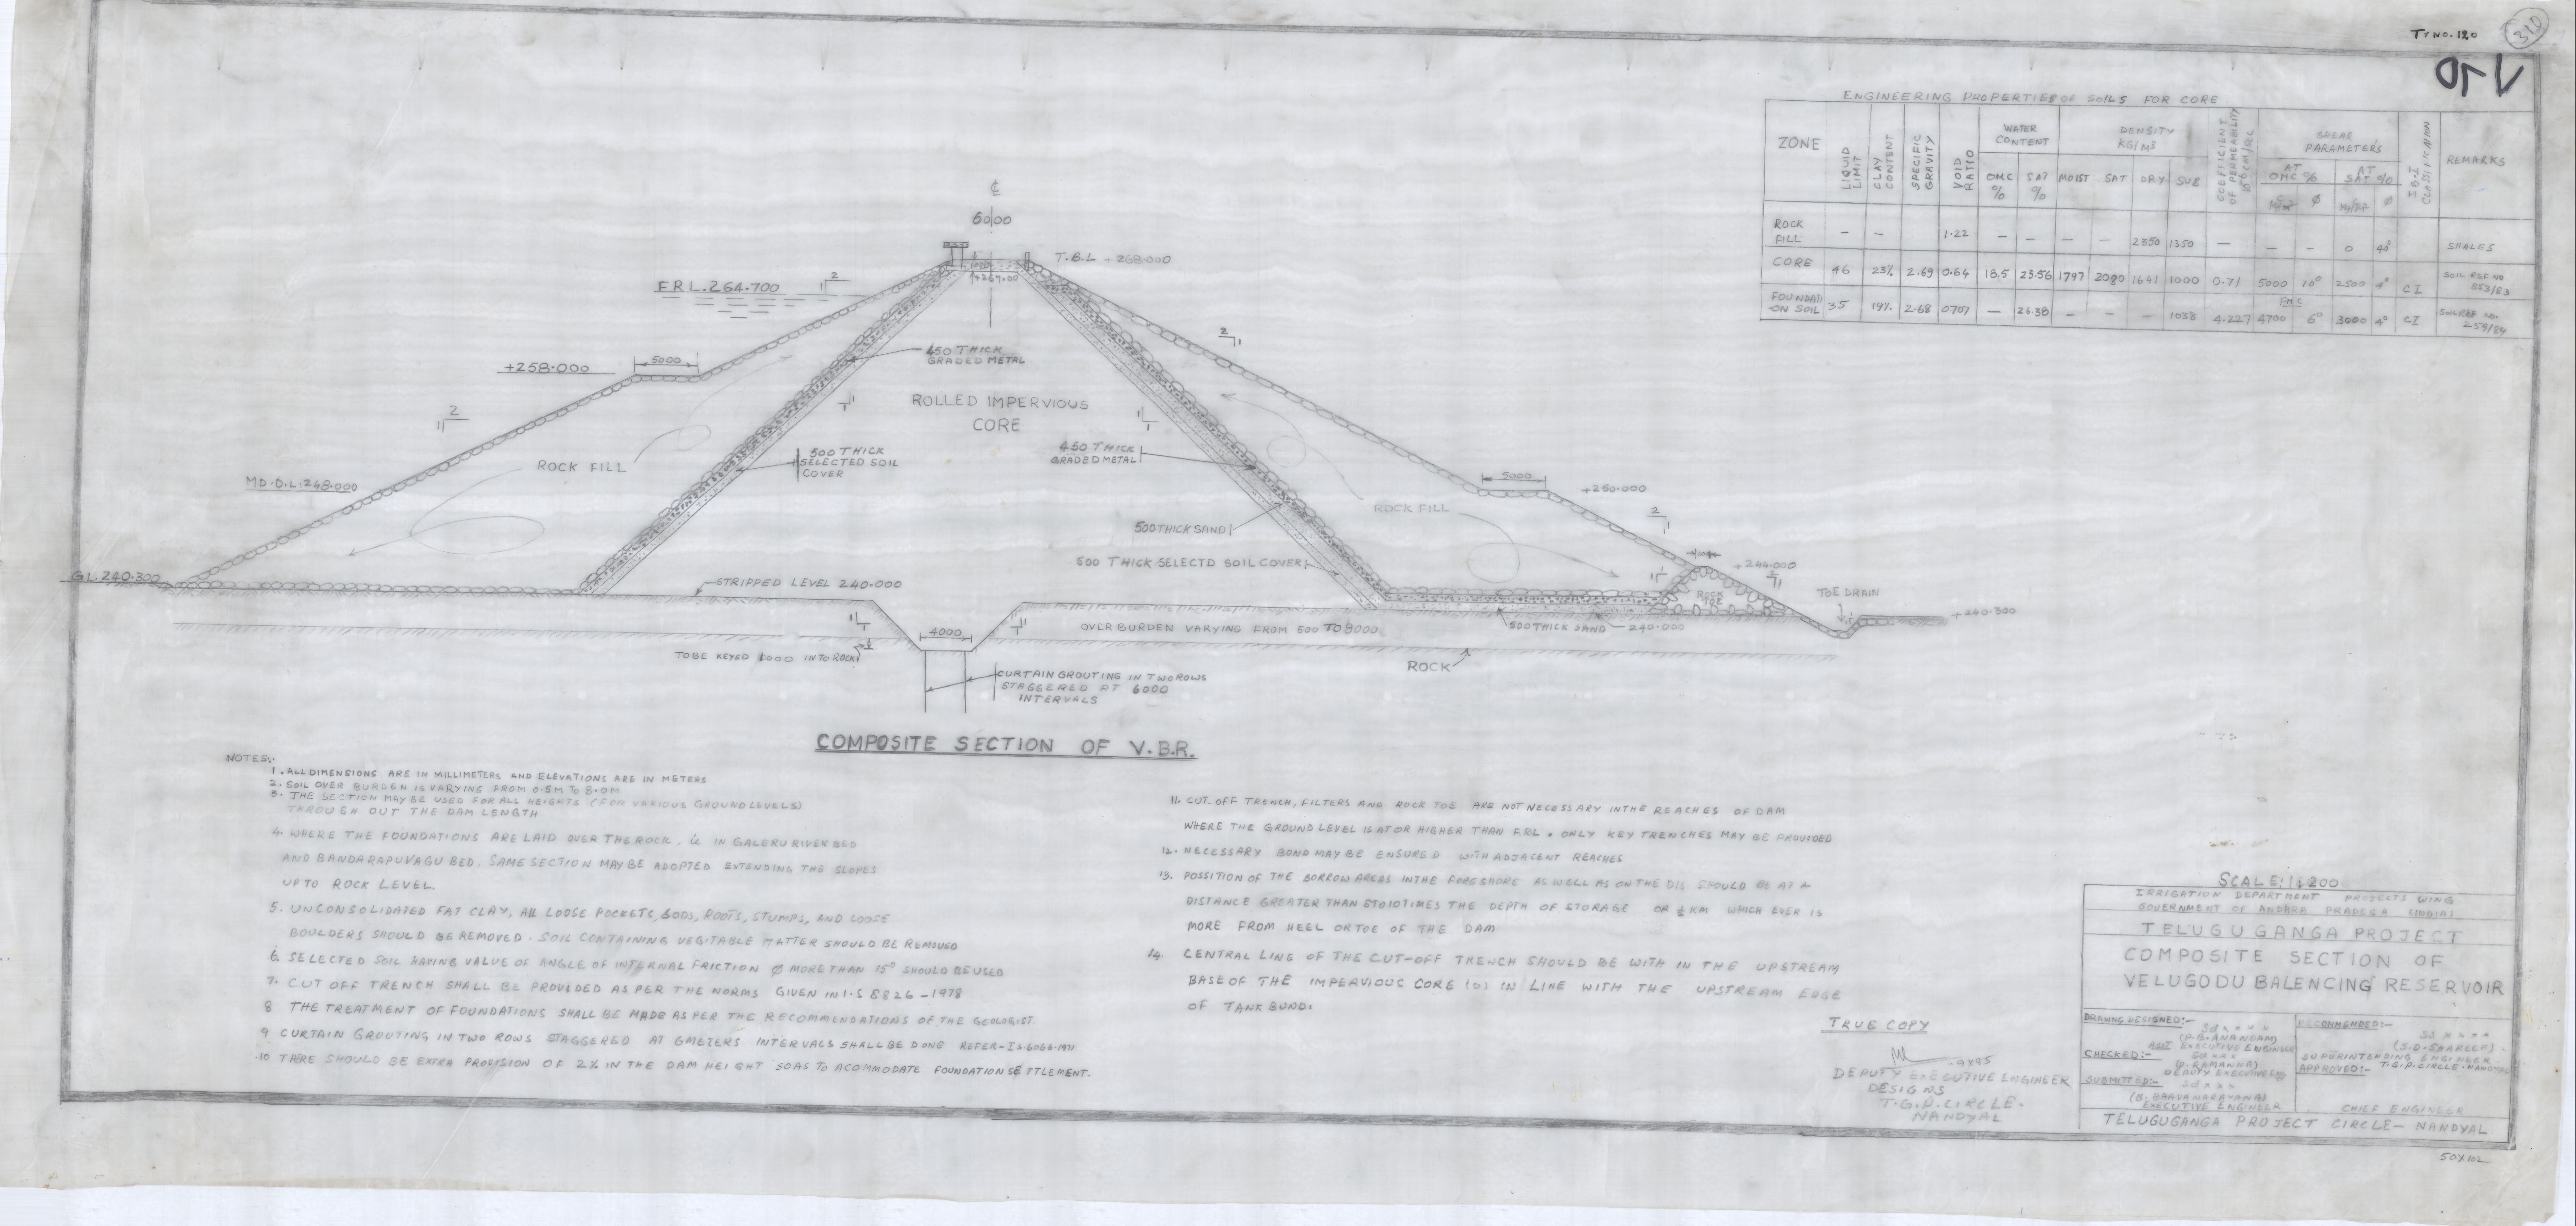 TY NO. 120
310
120
ENGINEERING PROPERTIES OF SOILS FOR CORE
ZONE
LIQUID LIMIT
CLAY CONTENT
SPECIFIC GRAVITY
VOID RATIO
WATER CONTENT
OMC %
SAT %
DENSITY KG/M3
MOIST SAT DRY SUB
COEFICIENT OF PERMEABILITY
SHEAR PARAMETERS
AT OMC %
AT SAT %
Ø
Ø
I.S.I CLASSIFICATION
REMARKS
ROCK FILL - - 1.22 - - - - 2350 1350 - - - 0 40° SHALES
CORE 46 23% 2.69 0.64 18.5 23.56 1797 2080 1641 1000 0.71 5000 10° 2500 4° CI SOIL REF NO 853/83
FOUNDATI-ON SOIL 35 19% 2.68 0707 - 26.38 - - - 1038 4.227 FMC 4700 6° 3000 4° CI SOIL REF NO. 259/84
℄
6000
T.B.L +268.000
+267.00
F.R.L. 264.700
2
1
+258.000
5000
450 THICK
GRADED METAL
ROLLED IMPERVIOUS
CORE
2
1
2
1
1
1
1
1
ROCK FILL
500 THICK
SELECTED SOIL
COVER
450 THICK
GRADED METAL
M.D.D.L. 248.000
5000
+250.000
ROCK FILL
2
1
500 THICK SAND
500 THICK SELECTD SOIL COVER
+244.000
2
1
G.L. 240.300
STRIPPED LEVEL 240.000
ROCK TOE
TOE DRAIN
+240.300
4000
OVER BURDEN VARYING FROM 500 TO 8000
500 THICK SAND
240.000
TOBE KEYED 1000 INTO ROCK
ROCK
CURTAIN GROUTING IN TWO ROWS
STAGGERED AT 6000
INTERVALS
COMPOSITE SECTION OF V.B.R.
NOTES:-
1. ALL DIMENSIONS ARE IN MILLIMETERS AND ELEVATIONS ARE IN METERS
2. SOIL OVER BURDEN IS VARYING FROM 0.5M TO 8.0M
3. THE SECTION MAY BE USED FOR ALL HEIGHTS (FOR VARIOUS GROUND LEVELS)
THROUGH OUT THE DAM LENGTH
4. WHERE THE FOUNDATIONS ARE LAID OVER THE ROCK. IN GALERU RIVER BED
AND BANDARAPUVAGU BED, SAME SECTION MAY BE ADOPTED EXTENDING THE SLOPES
UPTO ROCK LEVEL.
5. UNCONSOLIDATED FAT CLAY, All LOOSE POCKETS, SODS, ROOTS, STUMPS, AND LOOSE
BOULDERS SHOULD BE REMOVED. SOIL CONTAINING VEGITABLE MATTER SHOULD BE REMOVED
6. SELECTED SOIL HAVING VALUE OF ANGLE OF INTERNAL FRICTION Ø MORE THAN 15° SHOULD BE USED
7. CUT OFF TRENCH SHALL BE PROVIDED AS PER THE NORMS GIVEN IN I.S 8826-1978
8 THE TREATMENT OF FOUNDATIONS SHALL BE MADE AS PER THE RECOMMENDATIONS OF THE GEOLOGIST
9 CURTAIN GROUTING IN TWO ROWS STAGGERED AT 6METERS INTERVALS SHALL BE DONE REFER-I.S 6066-1971
10 THERE SHOULD BE EXTRA PROVISION OF 2% IN THE DAM HEIGHT SOAS TO ACOMMODATE FOUNDATION SETTLEMENT.
11. CUT-OFF TRENCH, FILTERS AND ROCK TOE ARE NOT NECESSARY IN THE REACHES OF DAM
WHERE THE GROUND LEVEL IS AT OR HIGHER THAN F.R.L. ONLY KEY TRENCHES MAY BE PROVIDED
12. NECESSARY BOND MAY BE ENSURED WITH ADJACENT REACHES
13. POSSITION OF THE BORROW AREAS IN THE FORESHORE AS WELL AS ON THE D/S SHOULD BE AT A
DISTANCE GREATER THAN 8TO10TIMES THE DEPTH OF STORAGE OR ½ KM WHICH EVER IS
MORE FROM HEEL OR TOE OF THE DAM
14. CENTRAL LING OF THE CUT-OFF TRENCH SHOULD BE WITH IN THE UPSTREAM
BASE OF THE IMPERVIOUS CORE (O) IN LINE WITH THE UPSTREAM EDGE
OF TANK BUND.
TRUE COPY
DEPUTY EXECUTIVE ENGINEER
DESIGNS
T.G.P. CIRCLE.
NANDYAL
SCALE:1:200
IRRIGATION DEPARTMENT PROJECTS WING
GOVERNMENT OF ANDHRA PRADESH (INDIA)
TELUGU GANGA PROJECT
COMPOSITE SECTION OF
VELUGODU BALENCING RESERVOIR
DRAWNG DESIGNED:-
Sd x x x x
(P.B. ANANDAM)
ASST EXECUTIVE ENGINEER
CHECKED:-
Sd x x x
(P. RAMANNA)
DEPUTY EXECUTIVE
SUBMITTED:-
Sd x x x
(B. BHAVANARAYANA)
EXECUTIVE ENGINEER
RECOMENDED:-
Sd x x x x
(S.D. SHAREEF)
SUPERINTENDING ENGINEER
T.G.P. CIRCLE. NANDYAL
APPROVED:-
CHIEF ENGINEER
TELUGUGANGA PROJECT CIRCLE- NANDYAL
50X102